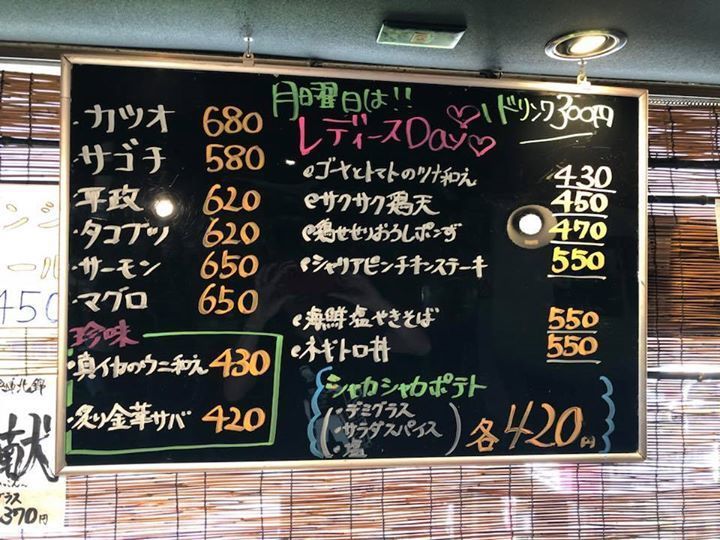 月曜日は!!
レディースDay
1ドリンク300円
・カツオ 680
・サゴチ 580
・平政 620
・タコブツ 620
・サーモン 650
・マグロ 650
珍味
・真イカのウニ和え 430
・炙り金華サバ 420
・ゴーヤとトマトのツナ和え 430
・サクサク鶏天 450
・鶏せせりおろしポンず 470
・シャリアピンチキンステーキ 550
・海鮮塩やきそば 550
・ネギトロ丼 550
シャカシャカポテト
・デミグラス
・サラダスパイス
・塩
各420円
450
献
グラス
370円